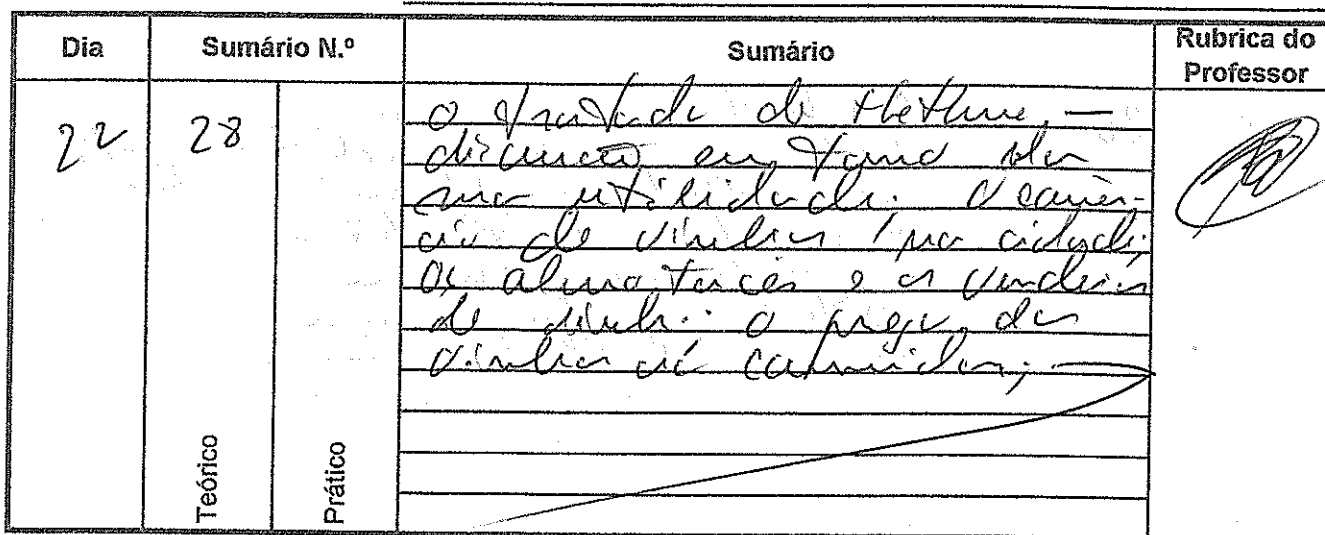 Dia
Sumário N.º
Sumário
Rubrica do
Professor
22
28
O Tratado de Methuen, —
discussão em torno da
sua utilidade; O comér-
cio de vinhos na cidade;
Os almotacés e as vendeiras
de vinho: o preço dos
vinhos
Teórico
Prático